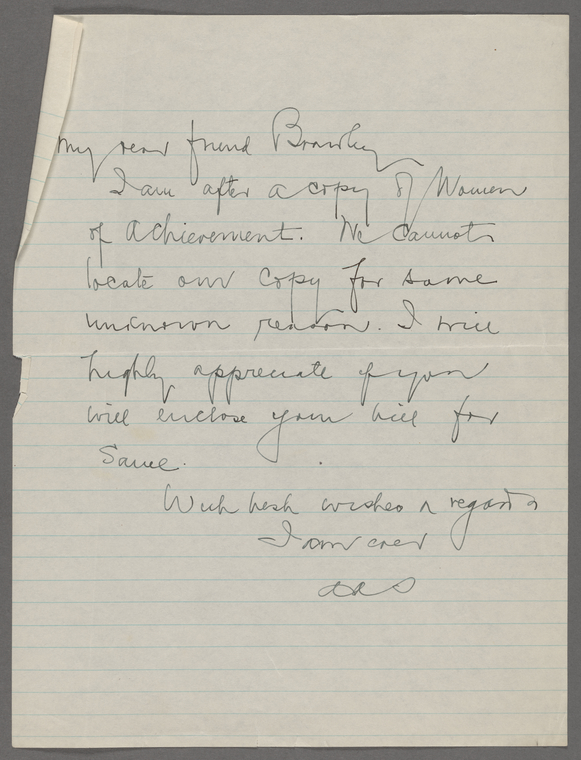 My dear friend Brawley
I am after a copy of Women
of Achievement. We cannot
locate our copy for some
unknown reason. I will
highly appreciate if you
will enclose your bill for
same.
With best wishes & regards
I am ever
AAS